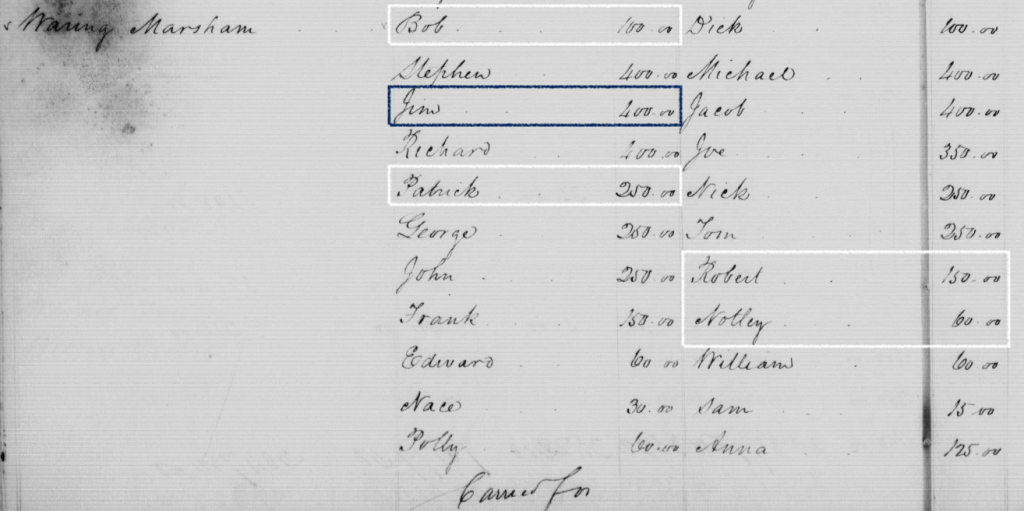 Waring Marsham Bob 100.00 Dick 100.00
Stephen 400.00 Michael 400.00
Jim 400.00 Jacob 400.00
Richard 400.00 Joe 350.00
Patrick 250.00 Nick 250.00
George 250.00 Tom 250.00
John 250.00 Robert 150.00
Frank 150.00 Notley 60.00
Edward 60.00 William 60.00
Nace 30.00 Sam 15.00
Polly 60.00 Anna 125.00
Carried for